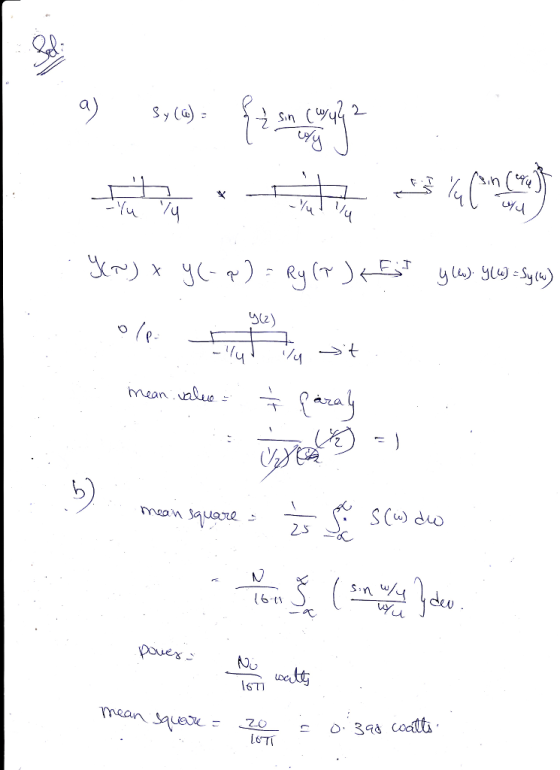 Sol:
a) Sy(ω) = { 1/2 sin (ω/4) / ω/y }²
1 1
-1/4 1/4 * -1/4 1/4 ⟷ F.T 1/4 ( sin (ω/4) / ω/4 )²
y(τ) × y(-τ) = Ry(τ) ⟷ F.T y(ω). y(ω) = Sy(ω)
o/p. y(z)
-1/4 1/4 → t
mean value = 1/T {area}
= 1/(1/2) (1/2) = 1
b)
mean square = 1/2s ∫ -∞ ∞ S(ω) dω
= N/16π ∫ -∞ ∞ ( sin ω/4 / ω/4 } dω.
power = No/16π watts
mean square = 20/16π = 0.398 watts.